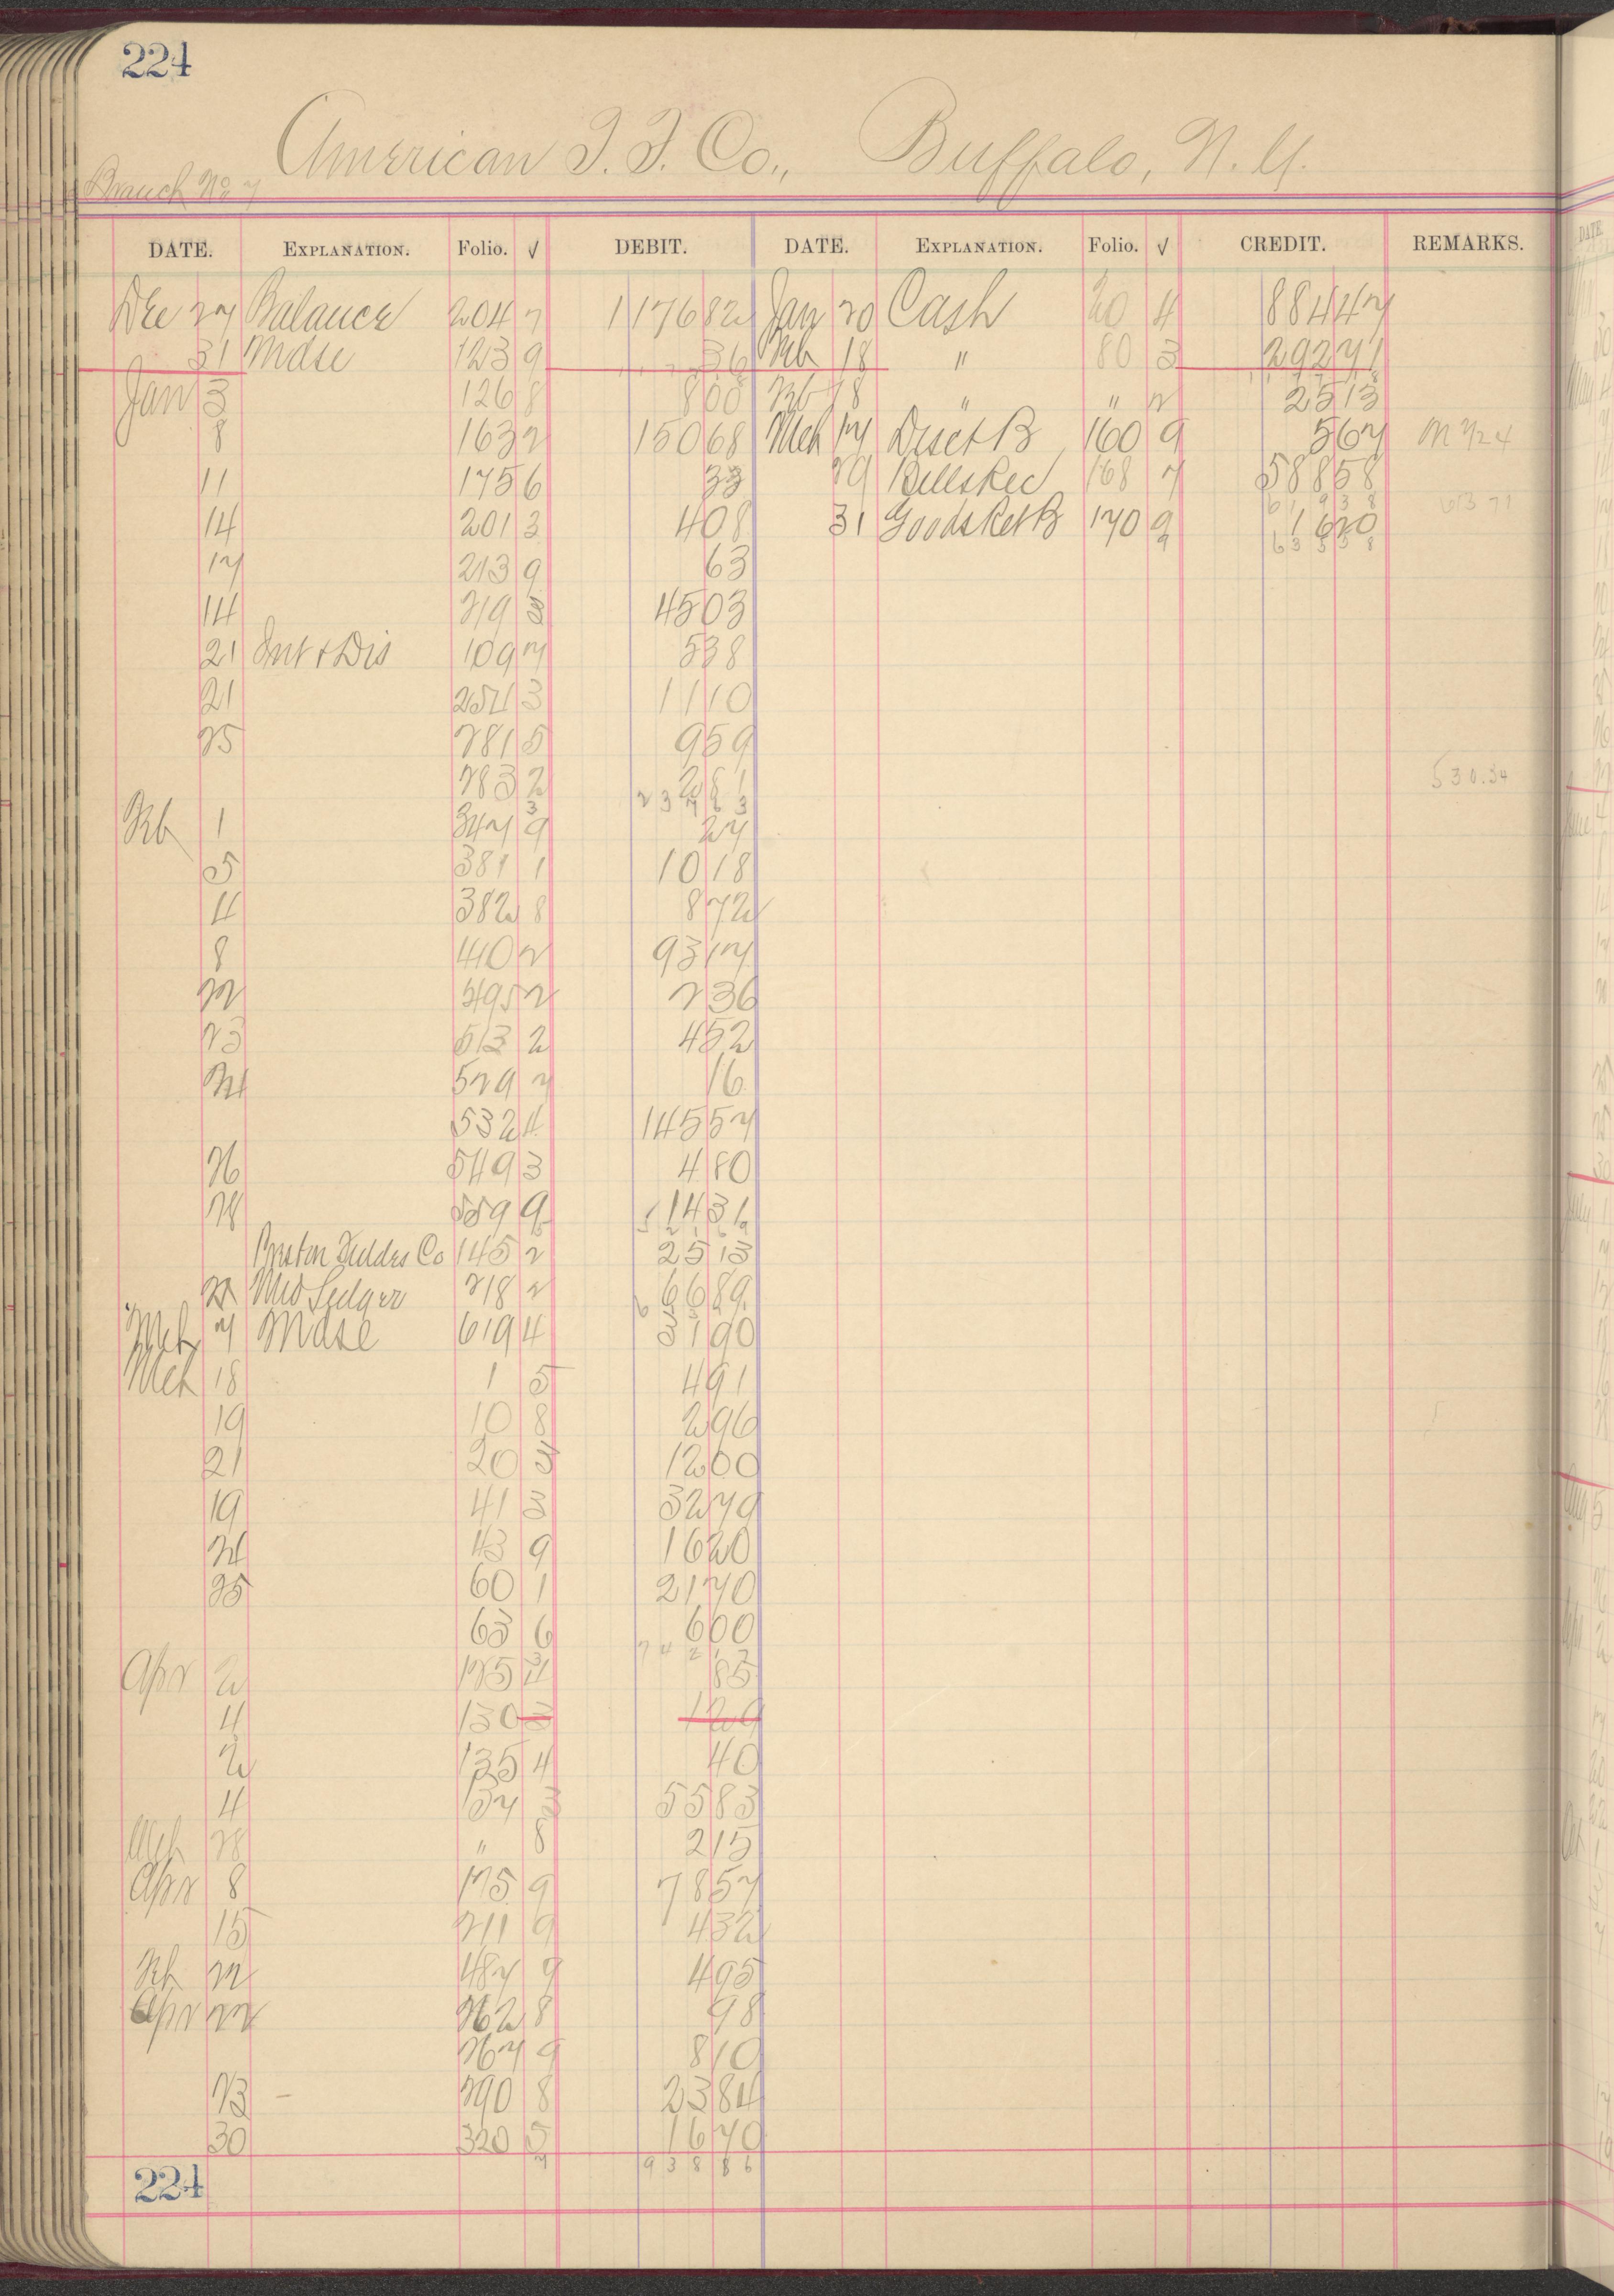 224
American I. F. Co., Buffalo, N. Y.
Branch No 7
DATE. EXPLANATION. Folio. √ DEBIT. DATE. EXPLANATION. Folio. √ CREDIT. REMARKS.
Dec 27 Balance 204 7 1176 82 Jan 20 Cash 20 4 884 47
31 Mdse 123 9 36 Feb 18 " 80 3 292 71
Jan 3 126 8 8 00 Feb 18 " " 2 25 13
8 163 2 150 68 Mch 17 Disct B 160 9 5 67
11 175 6 33 29 Bills Rec 168 7 588 58
14 201 3 4 08 31 Goods Ret B 170 9 16 20
63 5 5 8
17 213 9 63
14 219 3 45 03
21 Int + Dis 109 7 5 38
21 254 3 11 10
25 281 5 9 59
283 2 2 81
530.34
237 63
Feb 1 347 9 27
5 381 1 10 18
4 382 8 8 72
8 410 2 93 17
22 495 2 2 36
23 513 2 4 52
24 529 7 16
532 4 145 57
26 549 3 4 80
28 559 9 14 31
145 2 25 13
Ledger 218 2 66 89
Mch 7 Mdse 619 4 31 90
Mch 18 1 5 4 91
19 10 8 2 96
21 20 3 12 00
19 41 3 32 79
24 43 9 16 20
25 60 1 21 70
63 6 6 00
Apr 2 125 4 85
4 130 3 1 29
2 135 4 40
4 137 3 55 83
Mch 28 " 8 2 15
Apr 8 175 9 78 57
15 211 9 4 32
Feb 22 487 9 4 95
Apr 22 262 8 98
267 9 8 10
23 - 290 8 23 84
30 320 5 16 70
7 938 86
224